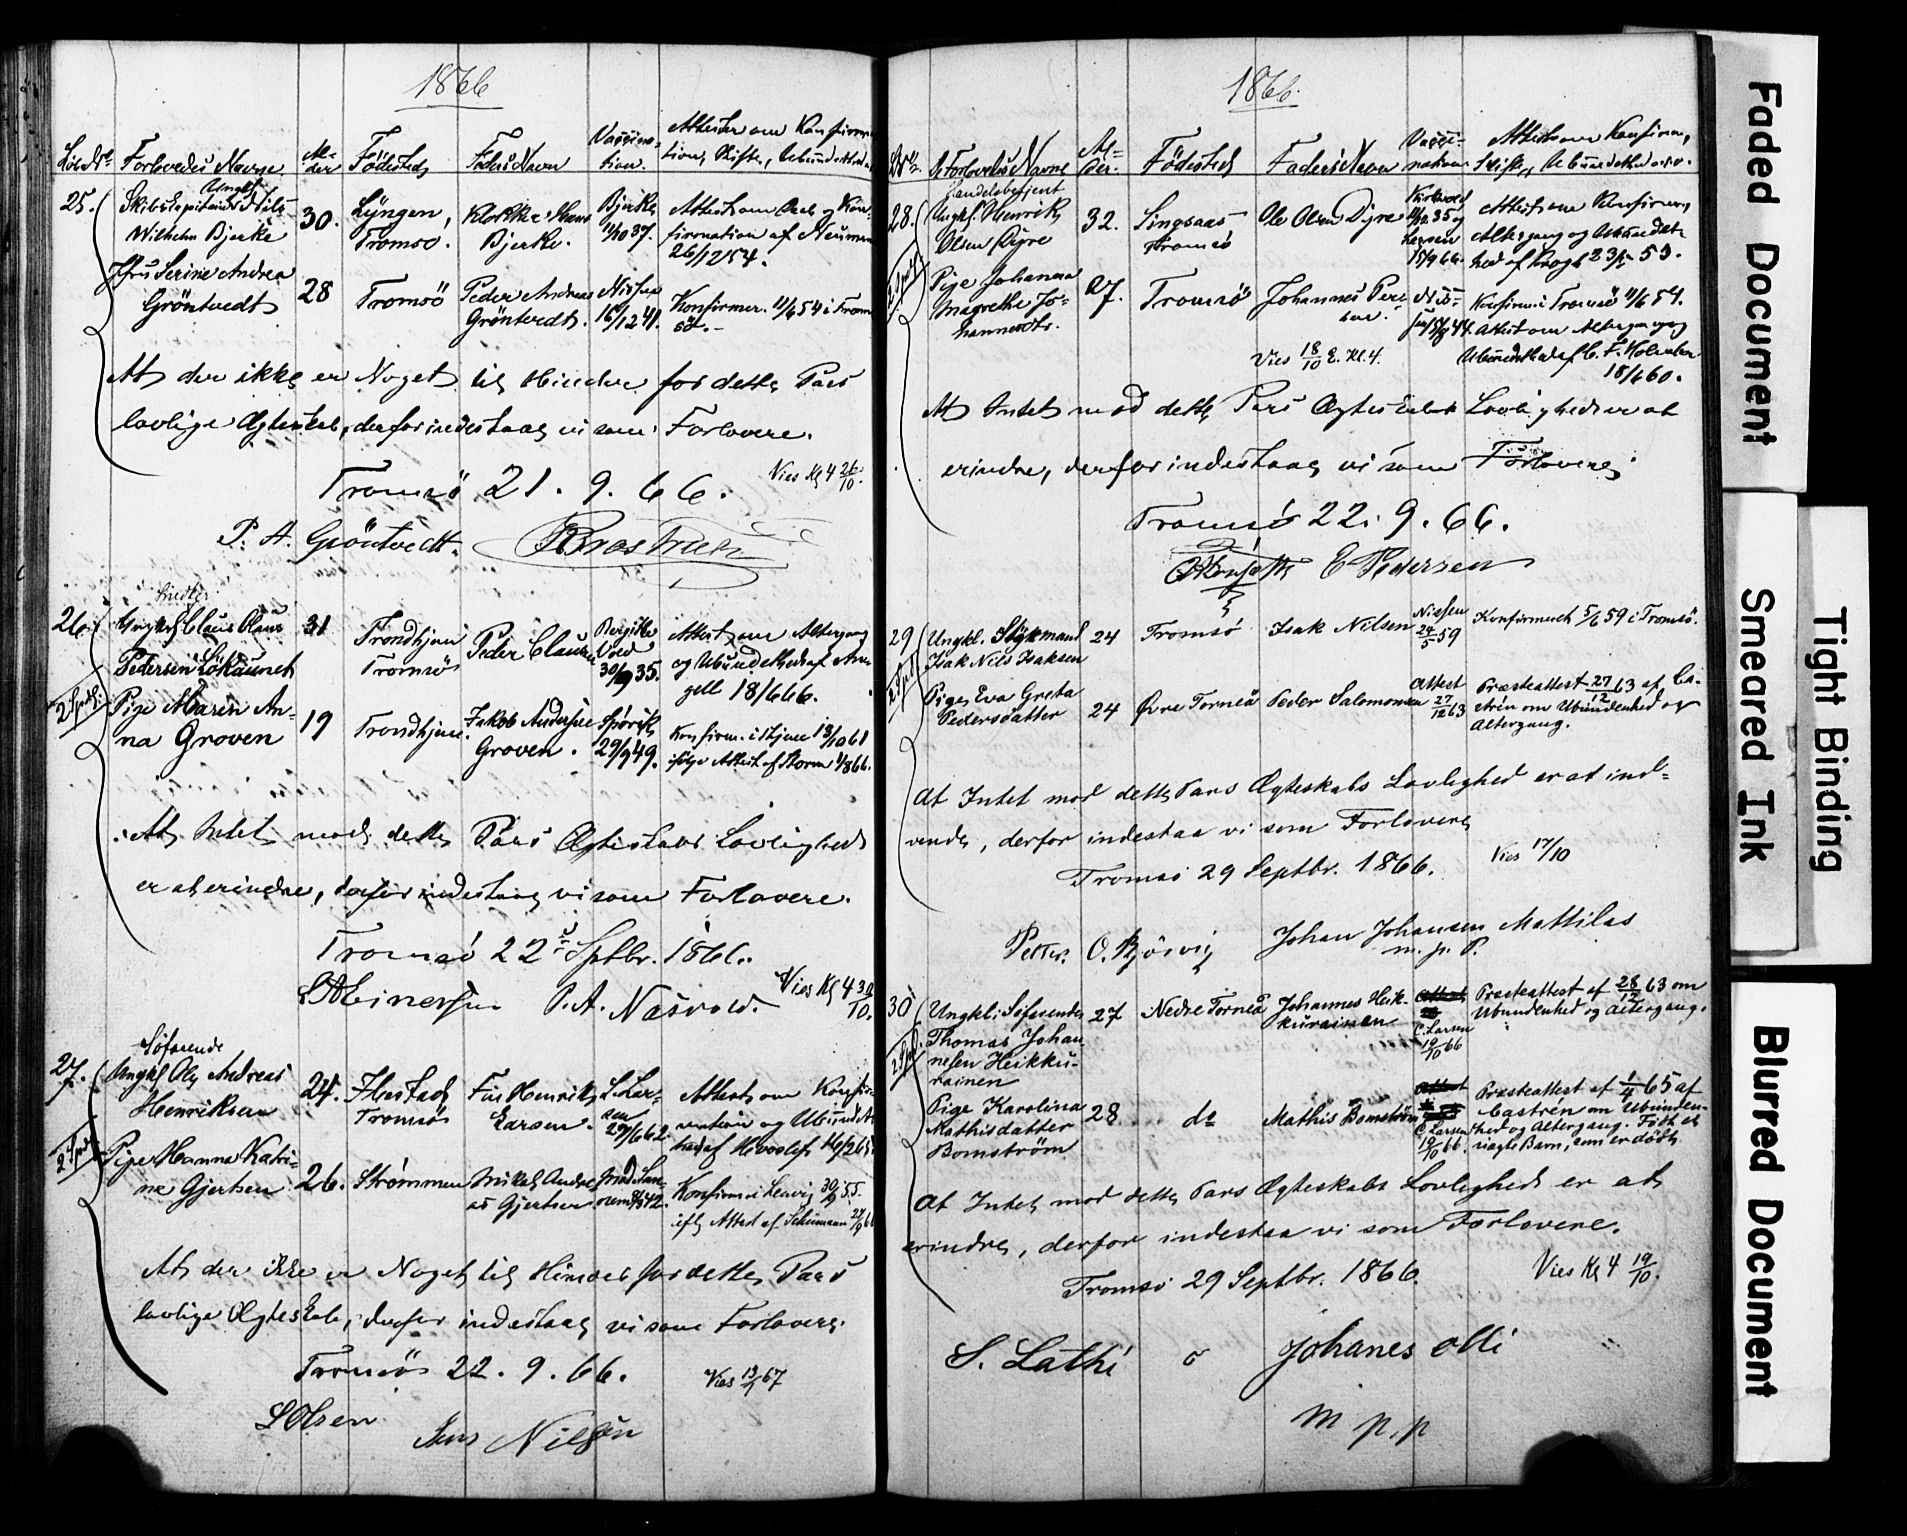 1866
LöbeNr. Forlovedes Navne Al-der Födested Faders Navn Vaccina-tion. Attester om Konfirma-tion, Skifte, Ubundethed
25. Ungkl. Skibskapitain Nils
Wilhelm Bjerke
30.
Lÿngen,
Tromsö.
Klokker Hans
Bjerke.
Bjerke
11/10 37.
Attest om Daab og Kon-
firmation af Neuman
26/12 54.
Jfru Serine Andrea
Gröntvedt
28
Tromsö
Peder Andreas
Gröntvedt.
Nissen
16/12 41.
Konfirmer. 11/6 54 i Trom-
sö.
At der ikke er Noget til Hinder for dette Pars
lovlige Ægteskab, derfor indestaae vi som Forlovere.
Tromsö 21. 9. 66.
Vies Kl 4 26/10.
P. A. Gröntvedt.
26. Smed
Ungkl Claus Olaus
Pedersen Lökaunet
31
Trondhjem
Tromsö
Peder Clausen
Birgitte
Vold
30/9 35.
Attest om Altergang
og Ubundethed af An-
gell 18/6 66.
2 Spdl.
Pige Maren An-
na Groven
19
Trondhjem.
Jakob Andersen
Groven.
29/9 49.
Konfirm. i Thjem 13/10 61
ifölge Attest af Storm 1/8 66.
At Intet mod dette Pars Ægteskabs Lovlighed
er at erindre, derfor indestaae vi som Forlovere.
Tromsö 22 Sptbr. 1866.
Vies Kl 4 30/10.
P. A. Næsvold.
27. Söfarende
Ungkl Ole Andreas
Henriksen
24.
Tromsö
Henrik
Larsen.
L. Lar-
sen
29/6 62.
Attest om Konfir-
mation og Ubundet-
hed af
2 Spdl.
Pige Hanna Katri-
ne Gjertsen
26.
Strømmen
Mikal Andre-
as Gjertsen
Konfirm. i Lenvig 30/9 55.
ifl. Attest af Schumann
At der ikke er Noget til Hinder for dette Pars
lovlige Ægteskab, derfor indestaae vi som Forlovere.
Tromsö 22. 9. 66.
Vies 13/1 67
L Olsen
Jens Nilsen
1866.
Forlovedes Navne Al-der. Födested Faders Navn Vacci-nation Attest om Konfirm, Skifte, Ubundethed o.s.v.
28. Handelsbetjent
Ungkl. Henrik
Olsen Dyre
32.
Singsaas
Tromsö
Ole Olsen Dyre
Attest om Konfirm,
Altergang og Ubundet-
hed af Krogh
2 Spdl.
Pige Johanna
Magrethe Jo-
hannesdtr.
27.
Tromsö
Johannes Peer-
sen.
Nis-
sen
Konfirm. i Tromsö 11/6 54.
Attest om Altergang og
Ubundethed af C. F. Holmboe
18/6 60.
Vies 18/10 E. Kl. 4.
At Intet mod dette Pars Ægteskabs Lovlighed er at
erindre, derfor indestaae vi som Forlovere.
Tromsö 22. 9. 66.
E Pedersen
29 Ungkl. Styrmand
Isak Nils Isaksen
24
Tromsö
Isak Nilsen
Nissen
24/5 59
Konfirmeret 5/6 59 i Tromsö.
2 Spdl.
Pige Eva Greta
Pedersdatter
24
Övre Torneå
Peder Salomonsen
Attest
27/12 63
Præsteattest 27/12 63 af Ca-
strén om Ubundenhed og
Altergang.
At Intet mod dette Pars Ægteskabs Lovlighed er at ind-
vende, derfor indestaa vi som Forlovere
Tromsö 29 Septbr. 1866.
Vies 17/10
Petter O. Björvig
Johan Johansen Mattilas
m. p. P.
30 Ungkl. Söfarende
Thomas Johan-
nesen Heikku-
rainen
27
Nedre Torneå
Johannes Heik-
kurainen
C. Larsen
19/10 66
Præsteattest af 28/12 63 om
Ubundenhed og Altergang.
2 Spdl.
Pige Karolina
Mathisdatter
Bomström
28
do
Mathis Bomström
C Larsen
19/10 66.
Præsteattest af 1/4 65 af
Castrén om Ubunden-
hed og Altergang. Födt et
uægte Barn, som er dödt.
At Intet mod dette Pars Ægteskabs Lovlighed er at
erindre, derfor indestaa vi som Forlovere.
Tromsö 29 Septbr. 1866.
Vies Kl 4 19/10.
S. Lathi o Johanes olli
m p. p
Faded Document
Tight Binding
Smeared Ink
Blurred Document